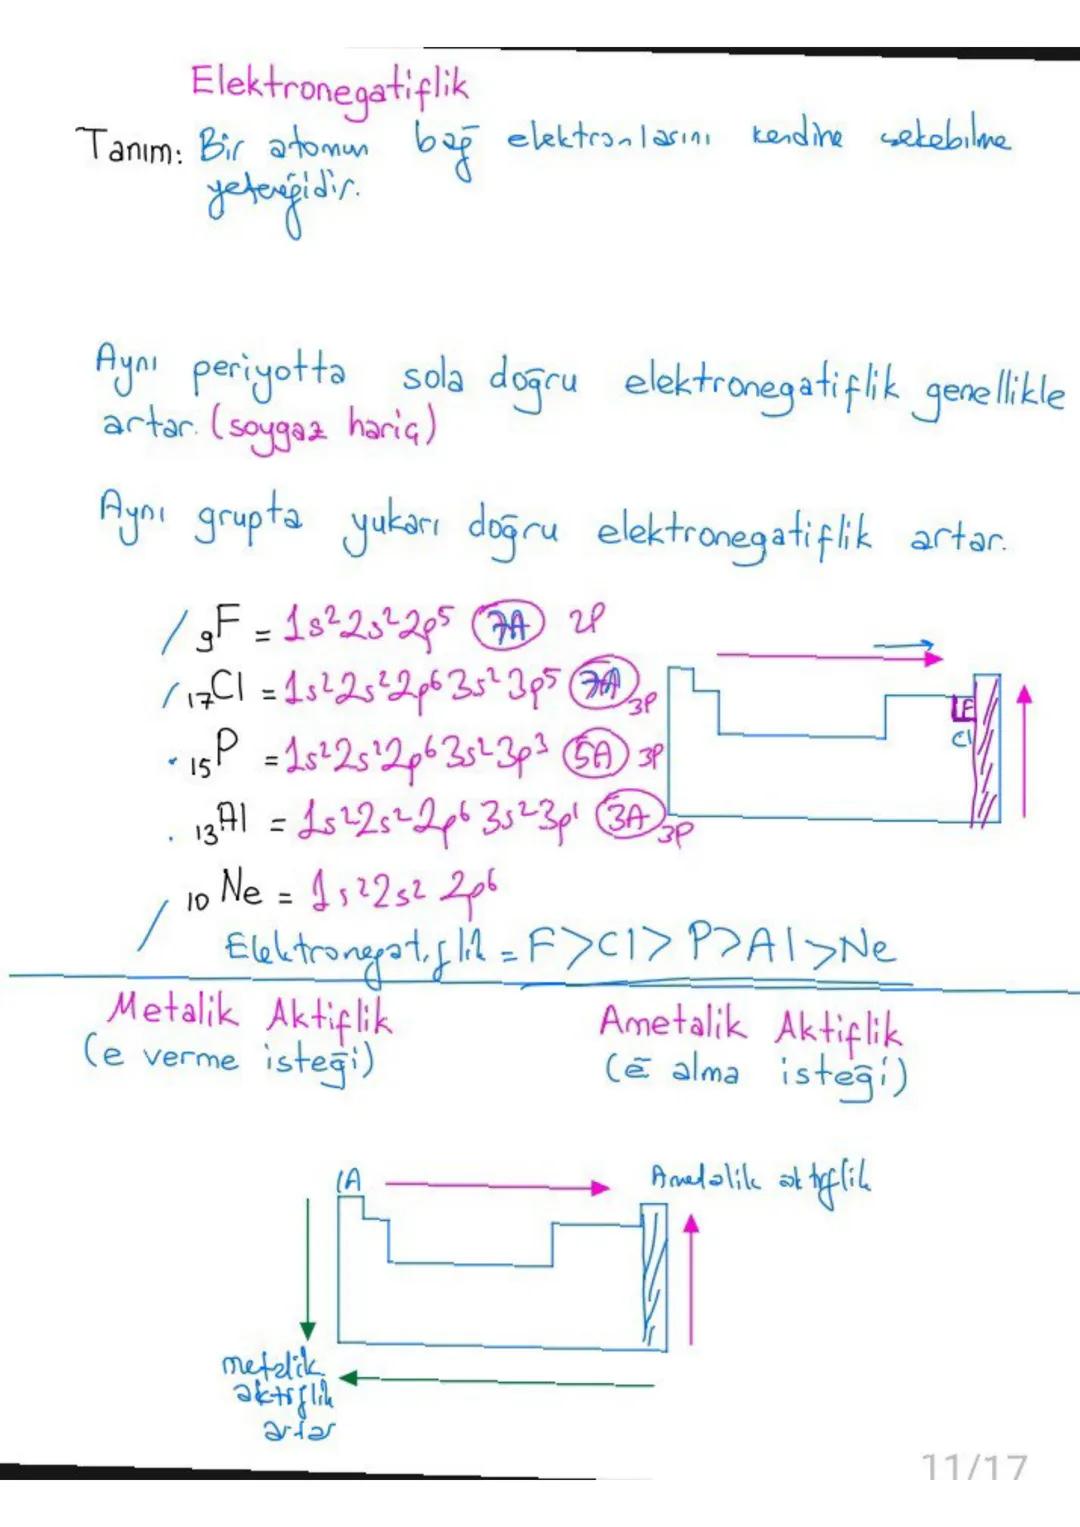 Elektronegatiflik
Tanım: Bir atomun bağ elektronlarını kendine çekebilme
yeteneğidir.
Aynı periyotta sola doğru elektronegatiflik genellikle
artar. (soygaz hariç)
Aynı grupta yukarı doğru elektronegatiflik artar.
₉F = 1s²2s²2p⁵ 7A 2P
₁₇Cl = 1s²2s²2p⁶3s²3p⁵ 7A 3P
F
Cl
₁₅P = 1s²2s²2p⁶3s²3p³ 5A 3P
₁₃Al = 1s²2s²2p⁶3s²3p¹ 3A 3P
₁₀Ne = 1s²2s²2p⁶
Elektronegatiflik = F>Cl>P>Al>Ne
Metalik Aktiflik
(e verme isteği)
Ametalik Aktiflik
(ē alma isteği)
1A
Ametalik aktiflik
metalik
aktiflik
artar
11/17